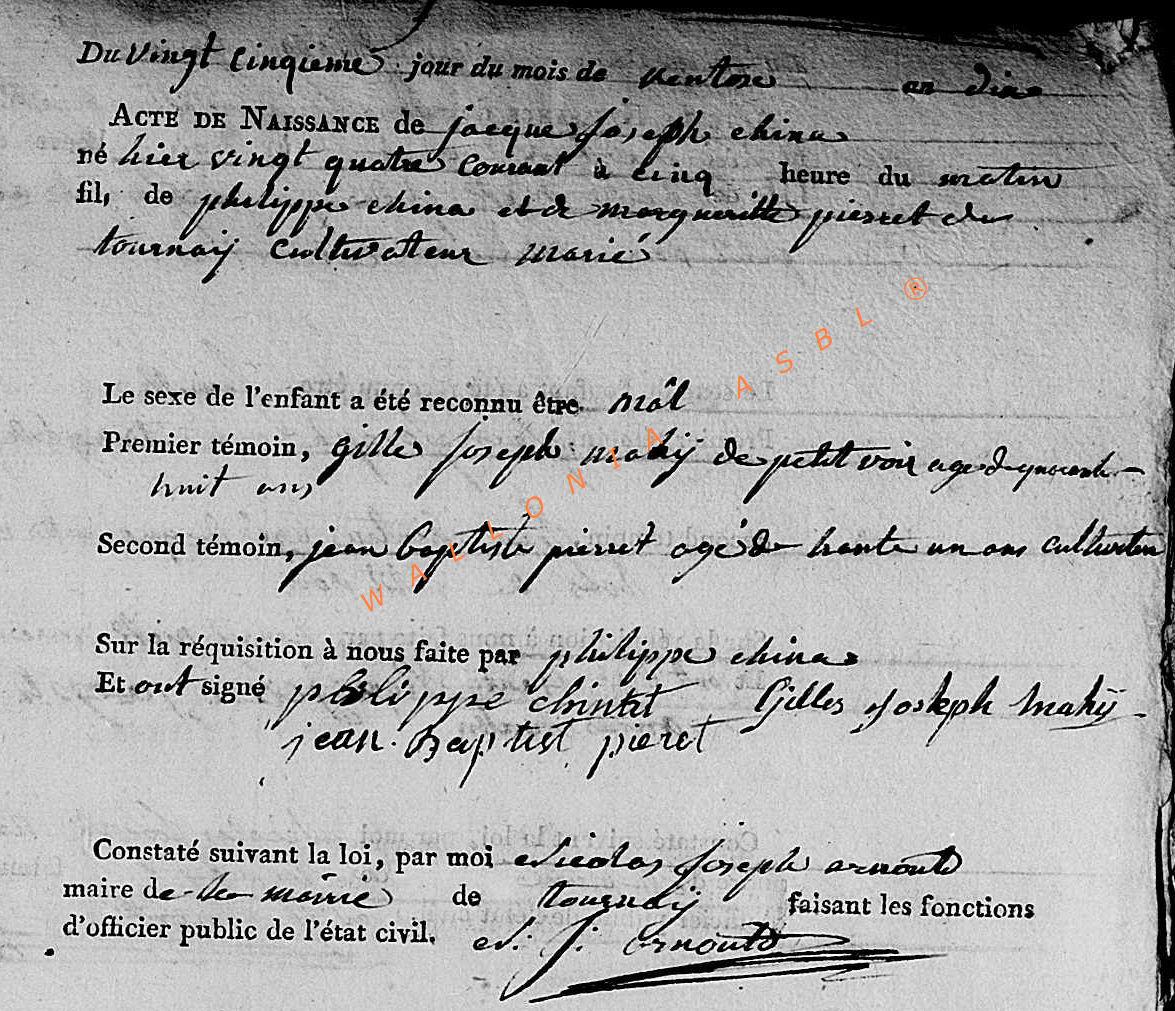 Du Vingt cinqieme jour du mois de ventose an dix
ACTE DE NAISSANCE de jacque joseph china
né hier vingt quatre courant à cinq heure du matin
fil, de philippe china et de margueritte pierret de
tournaij cultivateur marié
Le sexe de l'enfant a été reconnu être mâl
Premier témoin, gille joseph mahij de petit voir age de quarante
huit ans
Second témoin, jean baptiste pierret agé de trente un ans cultivateu
Sur la réquisition à nous faite par philippe china
Et ont signé philippe chintit Gilles Joseph Mahij
jean Baptist pieret
Constaté suivant la loi, par moi Nicolas joseph arnould
maire de la mairie de tournaij faisant les fonctions
d'officier public de l'état civil. N. j. arnould
WALLONIA ASBL ®